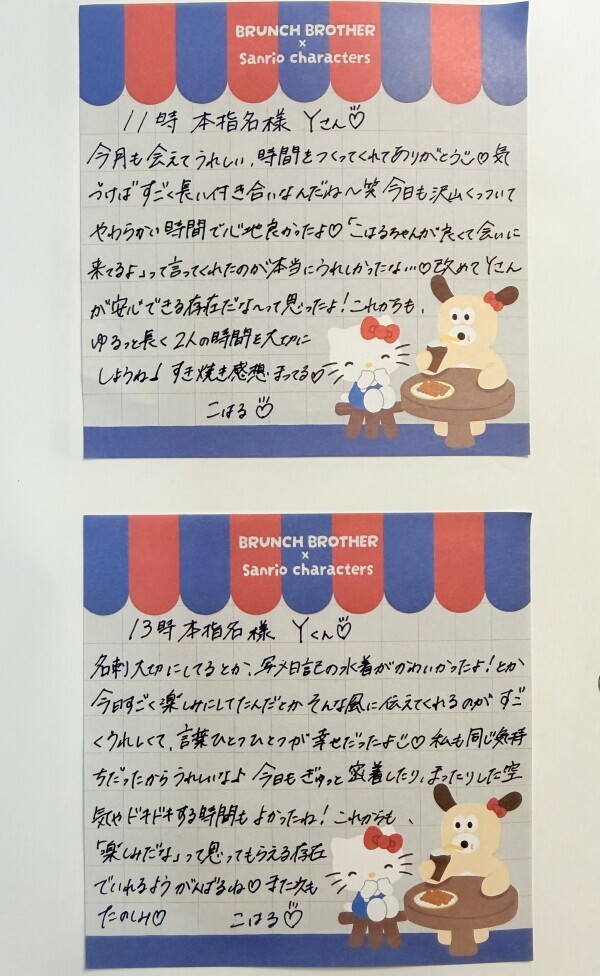 BRUNCH BROTHER
×
Sanrio characters
11時 本指名様 Yさん♡
今月も会えてうれしい、時間をつくってくれてありがとう♡気
づけばすごく長い付き合いなんだね〜笑 今日も沢山くっついて
やわらかい時間で心地良かったよ♡「こはるちゃんが良くて会いに
来てるよ」って言ってくれたのが本当にうれしかったな…♡改めてYさん
が安心できる存在だな〜って思ったよ！これからも、
ゆるっと長く2人の時間を大切に
しようね♪ すき焼き感想まってる♡
こはる♡
BRUNCH BROTHER
×
Sanrio characters
13時 本指名様 Yくん♡
名刺大切にしてるとか、写メ日記の水着がかわいかったよ！とか
今日すごく楽しみにしてたんだとかそんな風に伝えてくれるのがすご
くうれしくて、言葉ひとつひとつが幸せだったよ♡私も同じ気持
ちだったからうれしいなよ 今日もぎゅっと密着したり、まったりした空
気やドキドキする時間もよかったね！これからも、
「楽しみだな」って思ってもらえる存在
でいれるようがんばるね♡また次も
たのしみ♡ こはる♡